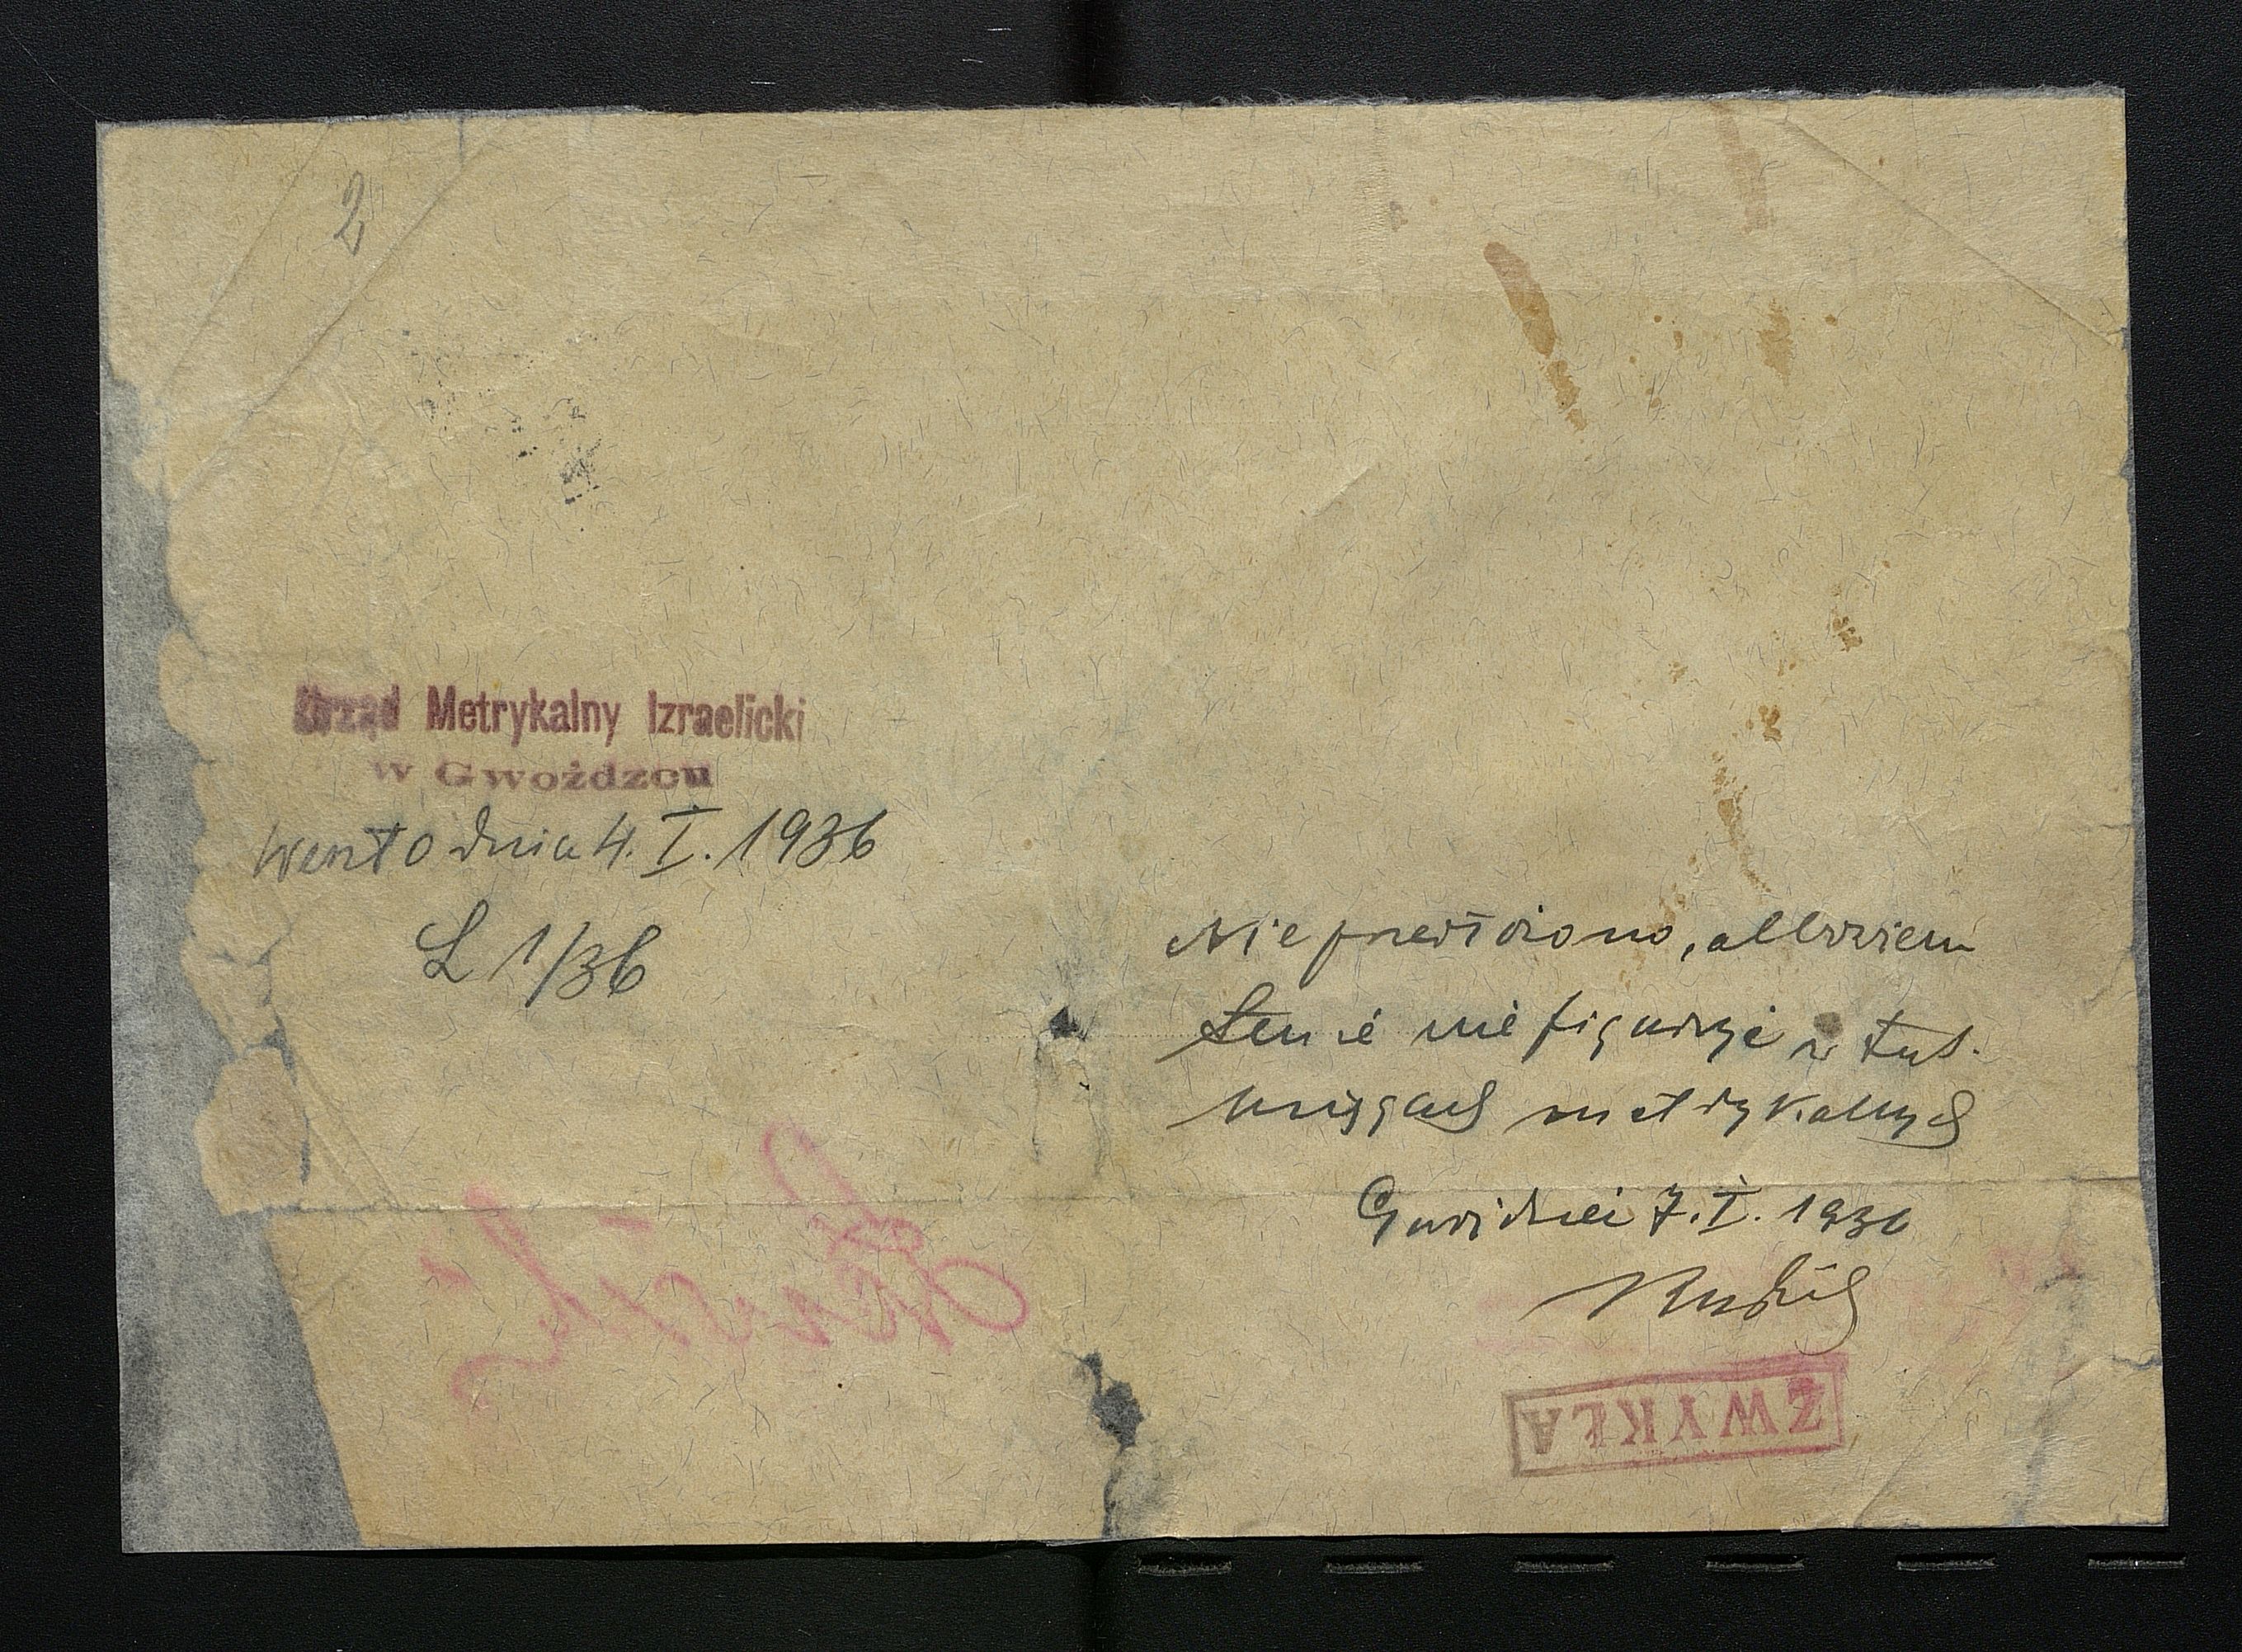 2
Urząd Metrykalny Izraelicki
w Gwoźdzcu
Weszło dnia 4. I. 1936
L 1/36
Nie przedłożono, albowiem
nie figuruje w tut.
księgach metrykalnych
Gwoździec 7. I. 1936
ZWYKŁA